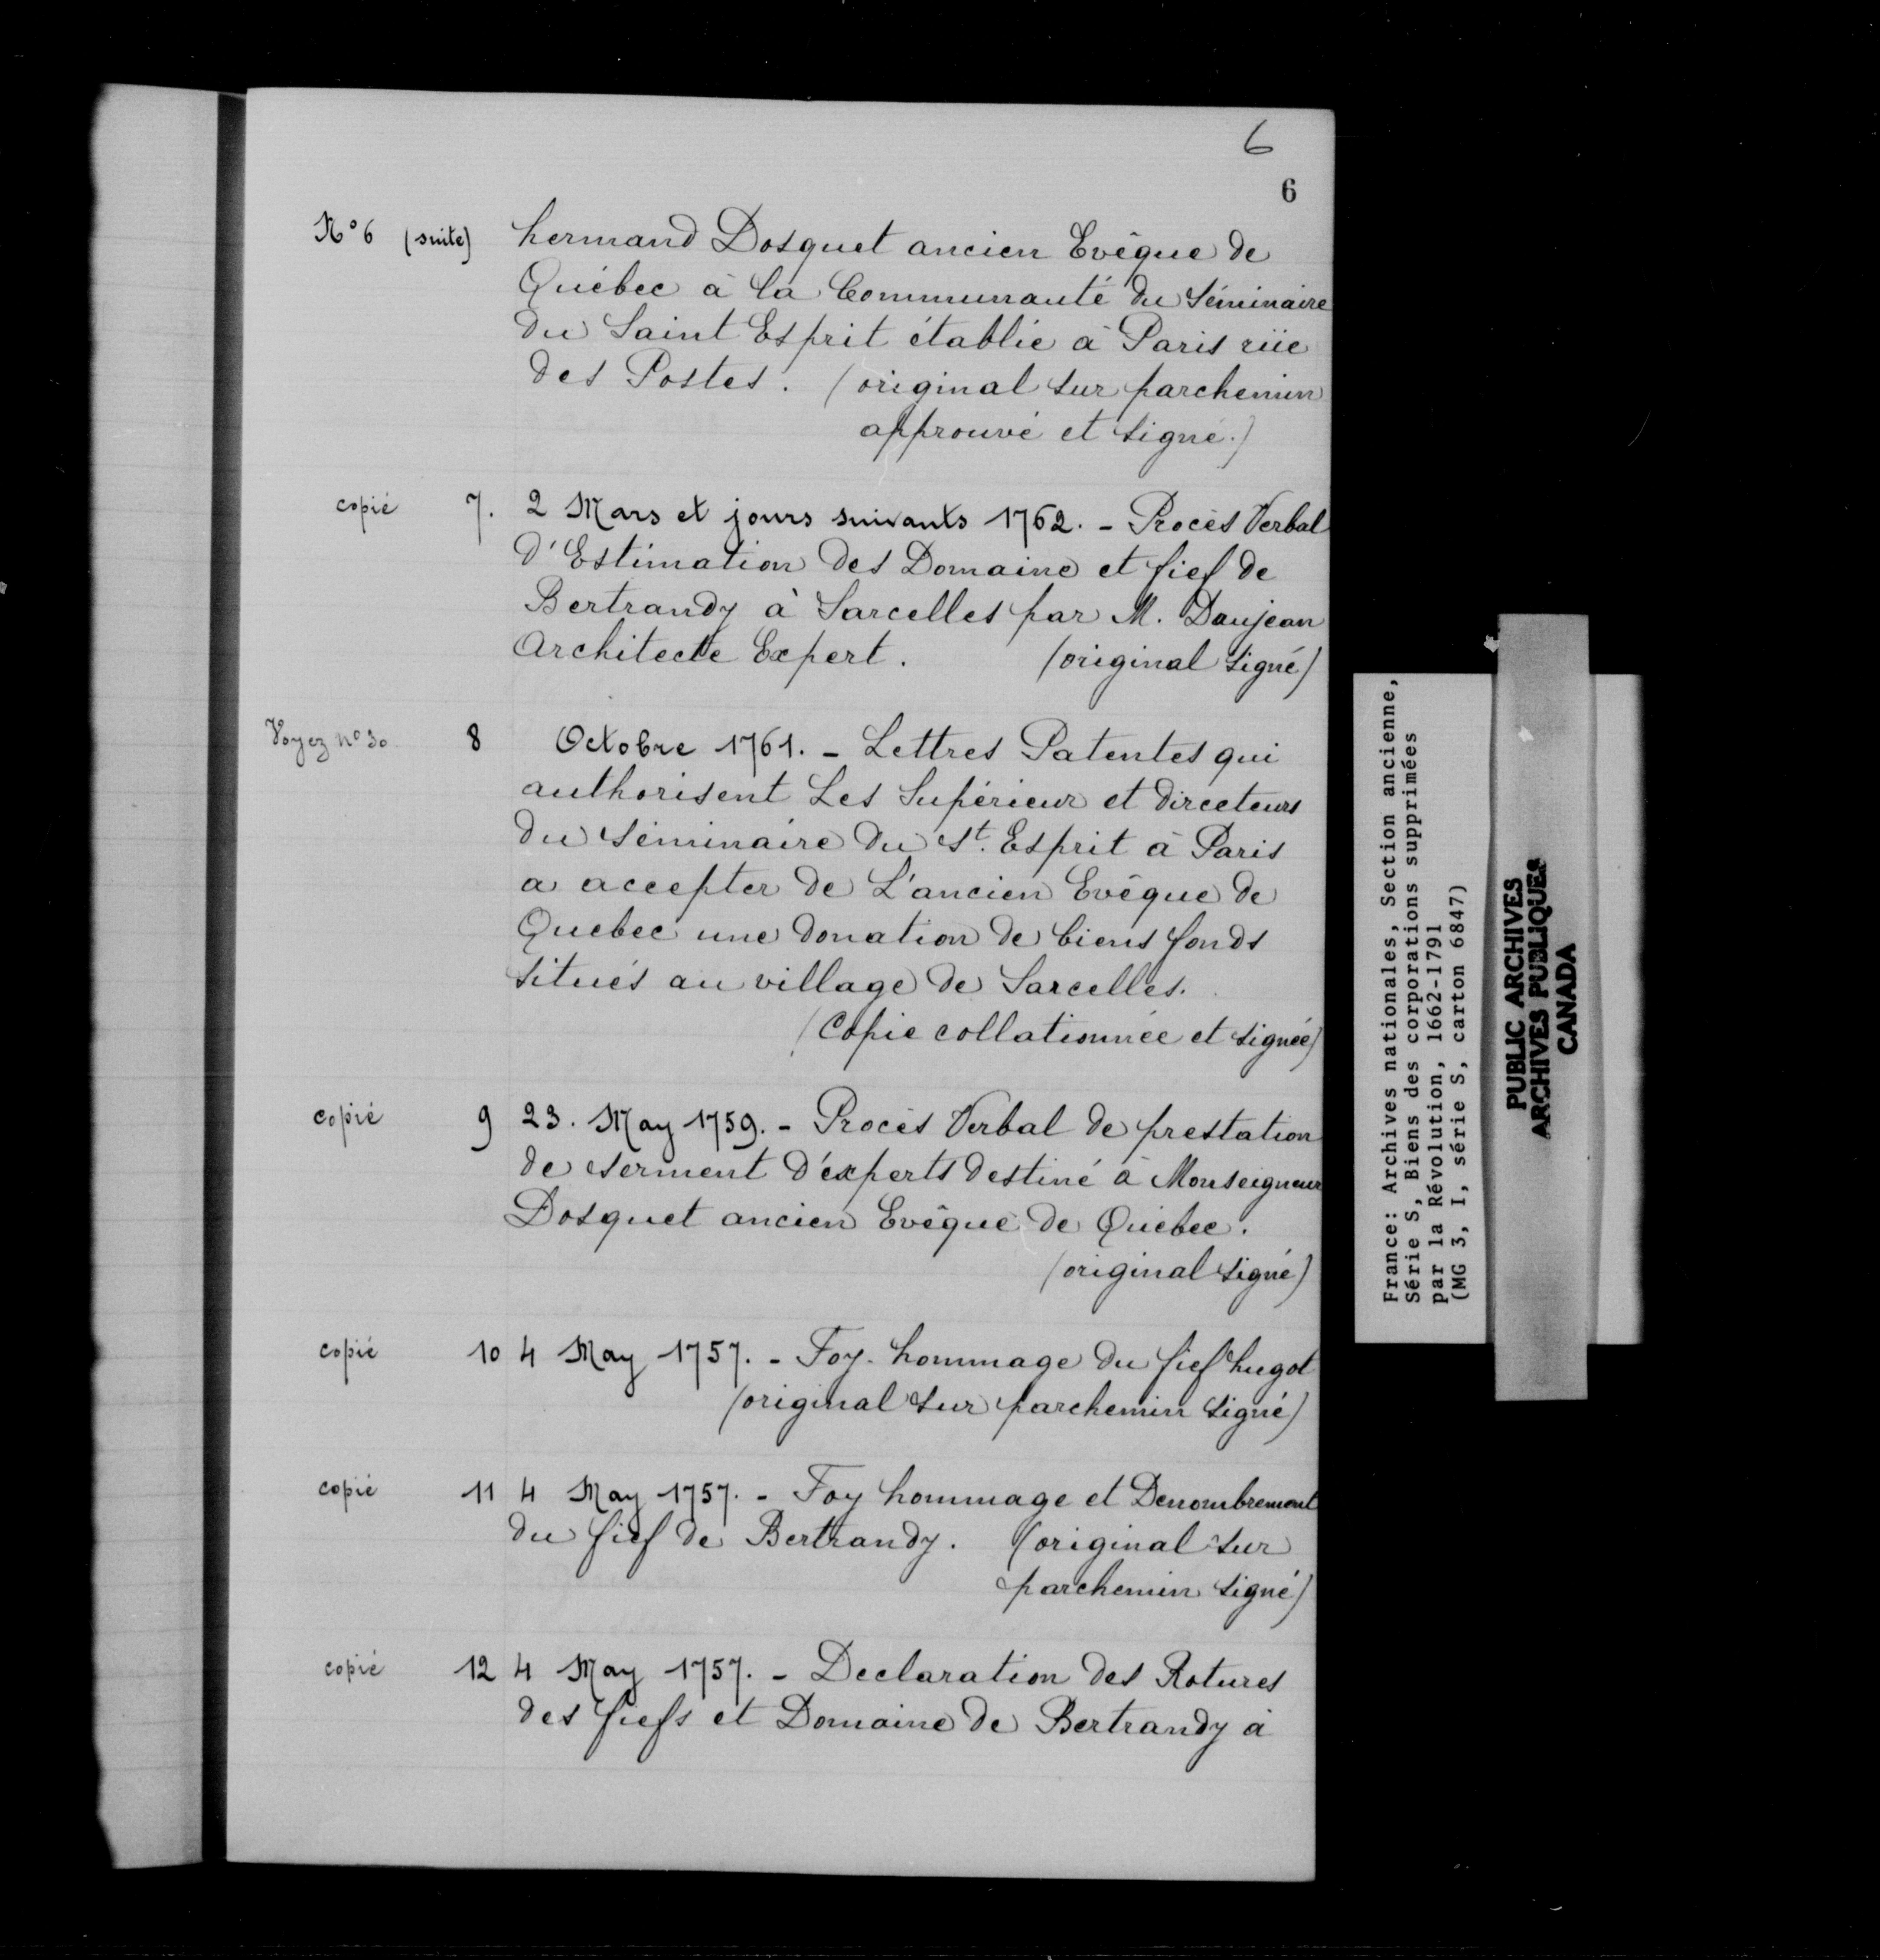 6
6
N° 6 (suite) hermand Dosquet ancien Evêque de
Québec à la Communauté du Séminaire
du Saint Esprit établie à Paris rüe
des Postes. (original sur parchemin
approuvé et signé.)
copié 7. 2 Mars et jours suivants 1762. - Procès Verbal
d'Estimation des Domaine et fief de
Bertrandy à Sarcelles par M. Daujean
Architecte Expert. (original signé)
Voyez n° 30 8 Octobre 1761. - Lettres Patentes qui
authorisent Les Supérieur et directeurs
du Séminaire du St. Esprit à Paris
a accepter de L'ancien Evêque de
Quebec une donation de biens fonds
situés au village de Sarcelles.
(Copie collationnée et signée)
copié 9 23. May 1759. - Procès Verbal de prestation
de serment d'experts destiné à Monseigneur
Dosquet ancien Evêque de Québec.
(original signé)
copié 10 4 May 1757. - Foy-hommage du fief hugot
(original sur parchemin signé)
copié 11 4 May 1757. - Foy hommage et Denombrement
du fief de Bertrandy. (original sur
parchemin signé)
copié 12 4 May 1757. - Declaration des Rotures
des fiefs et Domaine de Bertrandy à
France: Archives nationales, Section ancienne,
Série S, Biens des corporations supprimées
par la Révolution, 1662-1791
(MG 3, I, série S, carton 6847)
PUBLIC ARCHIVES
ARCHIVES PUBLIQUES
CANADA